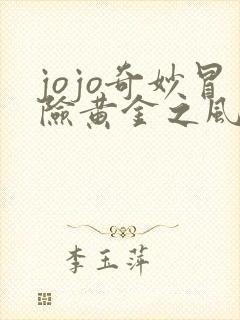 jojo奇妙冒
險黄金之風
李玉萍